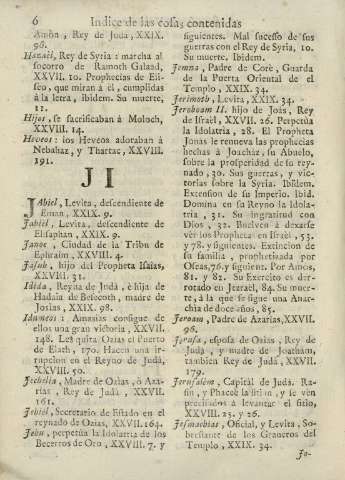 6 Indice de las cosas contenidas
Amòn, Rey de Juda, XXIX.
96.
Hazaèl, Rey de Syria: marcha al
socorro de Ramoth Galaad,
XXVII. 10. Prophecias de Eli-
seo, que miran à el, cumplidas
à la letra, ibidem. Su muerte,
12.
Hijos, se sacrificaban à Moloch,
XXVIII. 14.
Heveos: los Heveos adoraban à
Nebahaz, y Tharthac, XXVIII.
191.
J I
Jabiel, Levita, descendiente de
Eman, XXIX. 9.
Jahiel, Levita, descendiente de
Elisaphan, XXIX. 9.
Janoe, Ciudad de la Tribu de
Ephraim, XXVIII. 4.
Jasub, hijo del Propheta Isaias,
XXVIII. 31.
Idida, Reyna de Judà, è hija de
Hadaia de Besecoth, madre de
Josias, XXIX. 98.
Iduméos: Amasias consigue de
ellos una gran victoria, XXVII.
148. Les quita Ozias el Puerto
de Elath, 170. Hacen una ir-
rupcion en el Reyno de Judà,
XXVIII. 50.
Jechelia, Madre de Ozias, ò Aza-
rias, Rey de Judà, XXVII.
161.
Jehiél, Secretario de Estado en el
reynado de Ozias, XXVII. 164.
Jehu, perpetúa la Idolatria de los
Becerros de Oro, XXVII. 7. y
siguientes. Mal sucesso de sus
guerras con el Rey de Syria, 10.
Su muerte, Ibidem.
Jemna, Padre de Corè, Guarda
de la Puerta Oriental de el
Templo, XXIX. 34.
Jerimoth, Levita, XXIX. 34.
Jeroboam II. hijo de Joàs, Rey
de Israèl, XXVII. 26. Perpetúa
la Idolatria, 28. El Propheta
Jonàs le renueva las prophecias
hechas à Joachàz, su Abuelo,
sobre la prosperidad de su rey-
nado, 30. Sus guerras, y vic-
torias sobre la Syria. Ibidem.
Extension de su Imperio. Ibid.
Domina en su Reyno la Idola-
tria, 31. Su ingratitud con
Dios, 32. Buelven à dexarse
vér los Propheta en Israèl, 53.
y 78. y siguientes. Extincion de
su familia, prophetizada por
Oseas, 76. y siguient. Por Amòs,
81. y 82. Su Exercito es der-
rotado en Jezrael, 84. Su muer-
te, à la que se sigue una Anar-
chia de doce años, 85.
Jeroam, Padre de Azarias, XXVII.
96.
Jerusa, esposa de Ozias, Rey de
Judà, y madre de Joatham,
tambien Rey de Judà, XXVII.
179.
Jerusalém, Capital de Judà. Ra-
sin, y Phaceè la sitian, y se ven
precisados à levantar el sitio,
XXVIII. 25. y 26.
Jesmachias, Oficial, y Levita, So-
brestante de los Graneros del
Templo, XXIX. 34.
Jo-